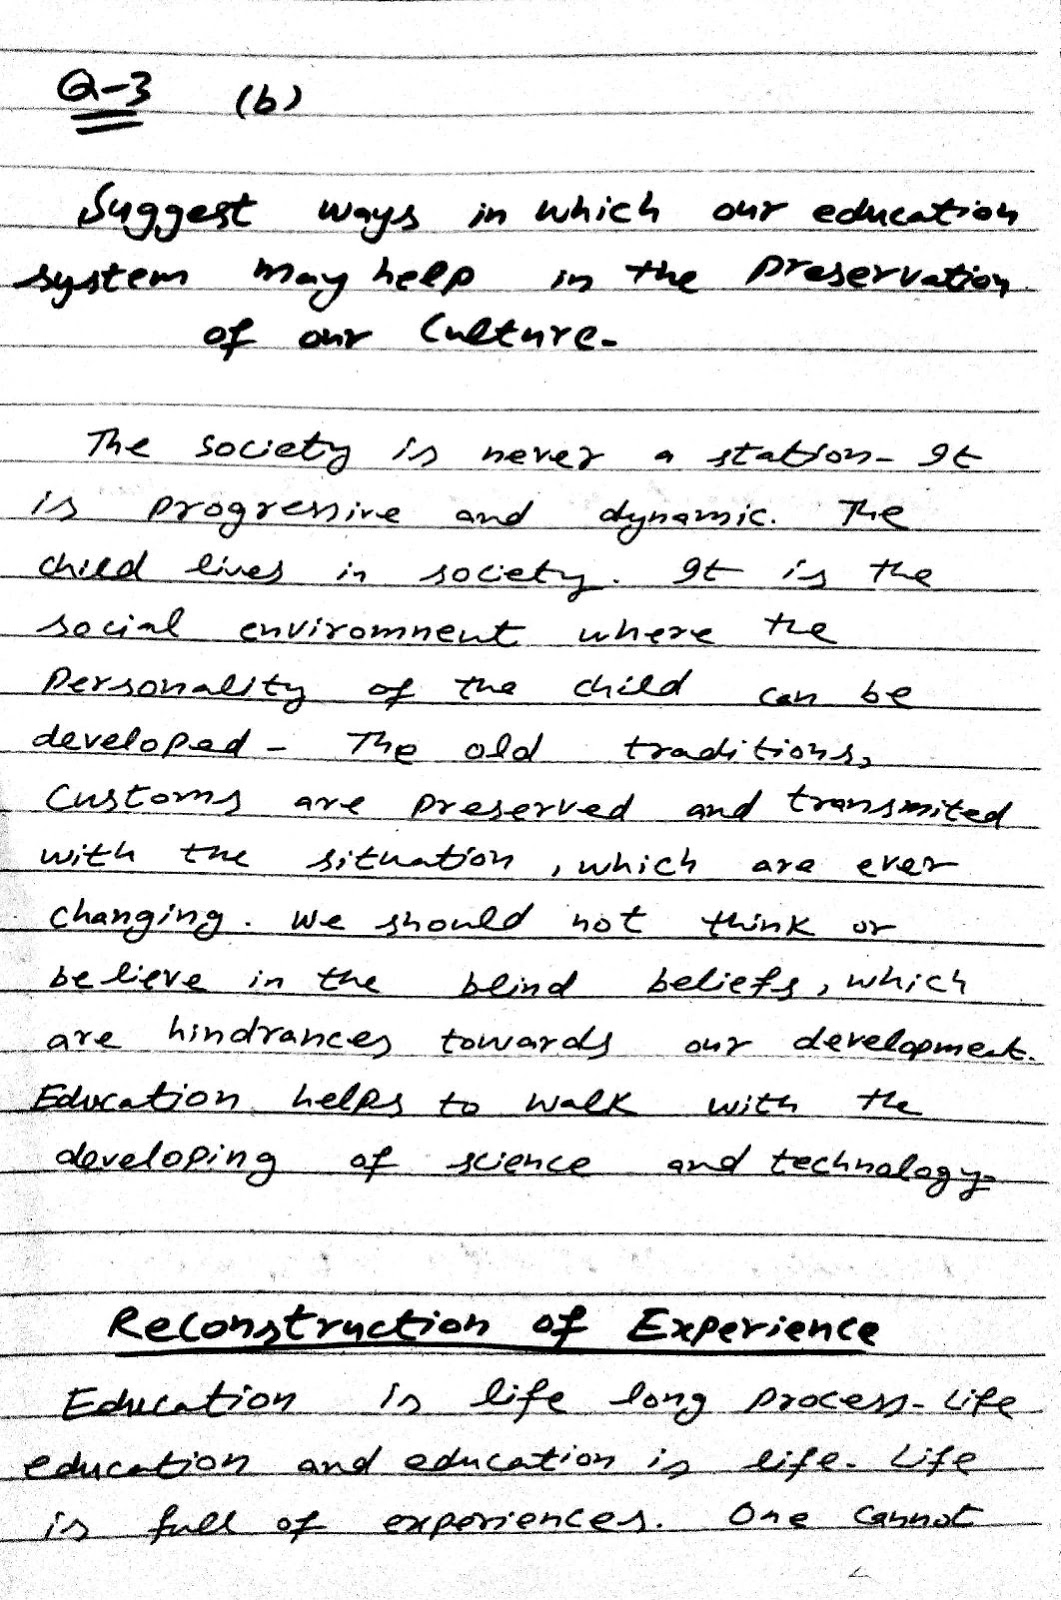 Q-3 (b)
Suggest ways in which our education
system may help in the preservation
of our Culture.
The society is never a station. It
is progressive and dynamic. The
child lives in society. It is the
social enviromnent where the
Personality of the child can be
developed. The old traditions,
Customs are preserved and transmited
with the situation, which are ever
changing. We should not think or
believe in the blind beliefs, which
are hindrances towards our development.
Education helps to walk with the
developing of science and technology.
Reconstruction of Experience
Education is life long process. Life
education and education is life. Life
is full of experiences. One cannot